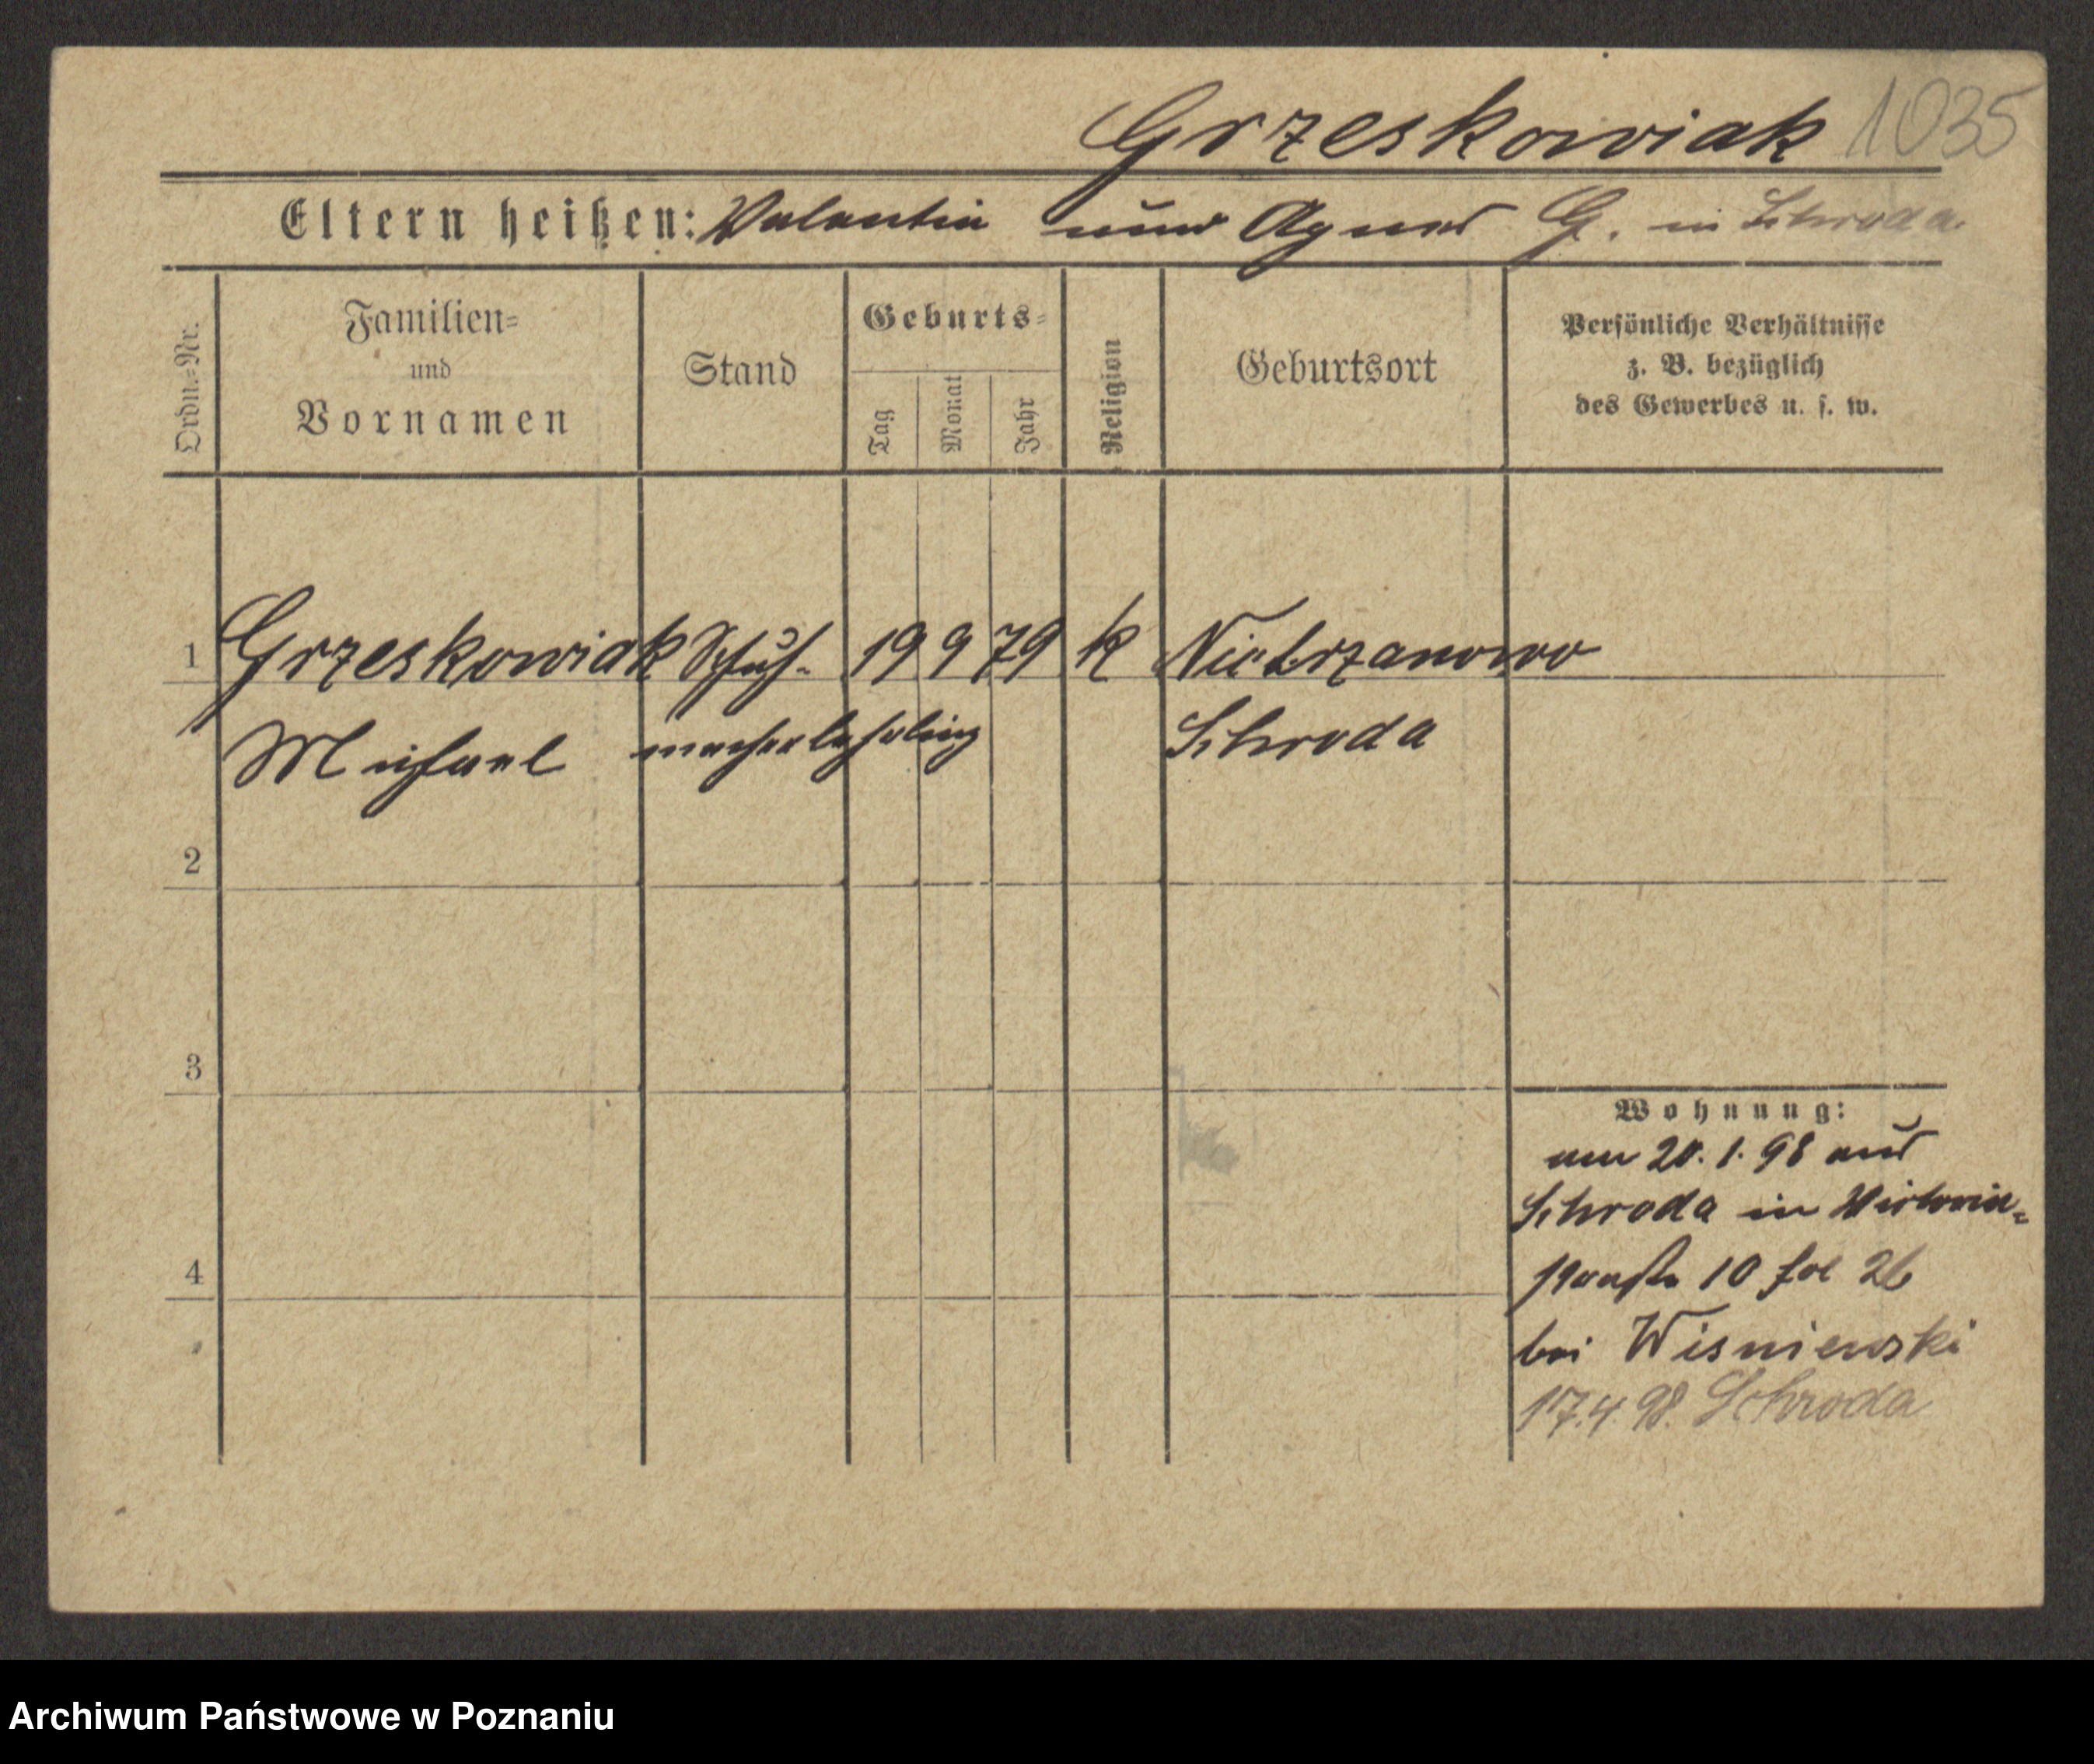 Grzeskowiak 1035
Eltern heißen: Valentin und Agnes G. in Schroda
Ordn.-Nr.
Familien-
und
Vornamen
Stand
Geburts-
Tag
Monat
Jahr
Religion
Geburtsort
Persönliche Verhältnisse
z. B. bezüglich
des Gewerbes u. s. w.
1 Grzeskowiak Schuh- 19 9 79 k Nietrzanowo
Michael macherlehrling Schroda
2
3
4
Wohnung:
am 20.1.98 aus
Schroda in
10 26
bei Wisniewski
17.4.98. Schroda
Archiwum Państwowe w Poznaniu